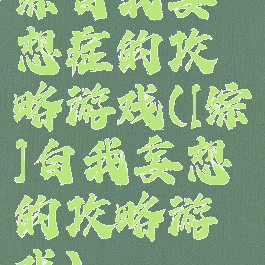 综自我妄
想症的攻
略游戏([综
]自我妄想
的攻略游
戏)